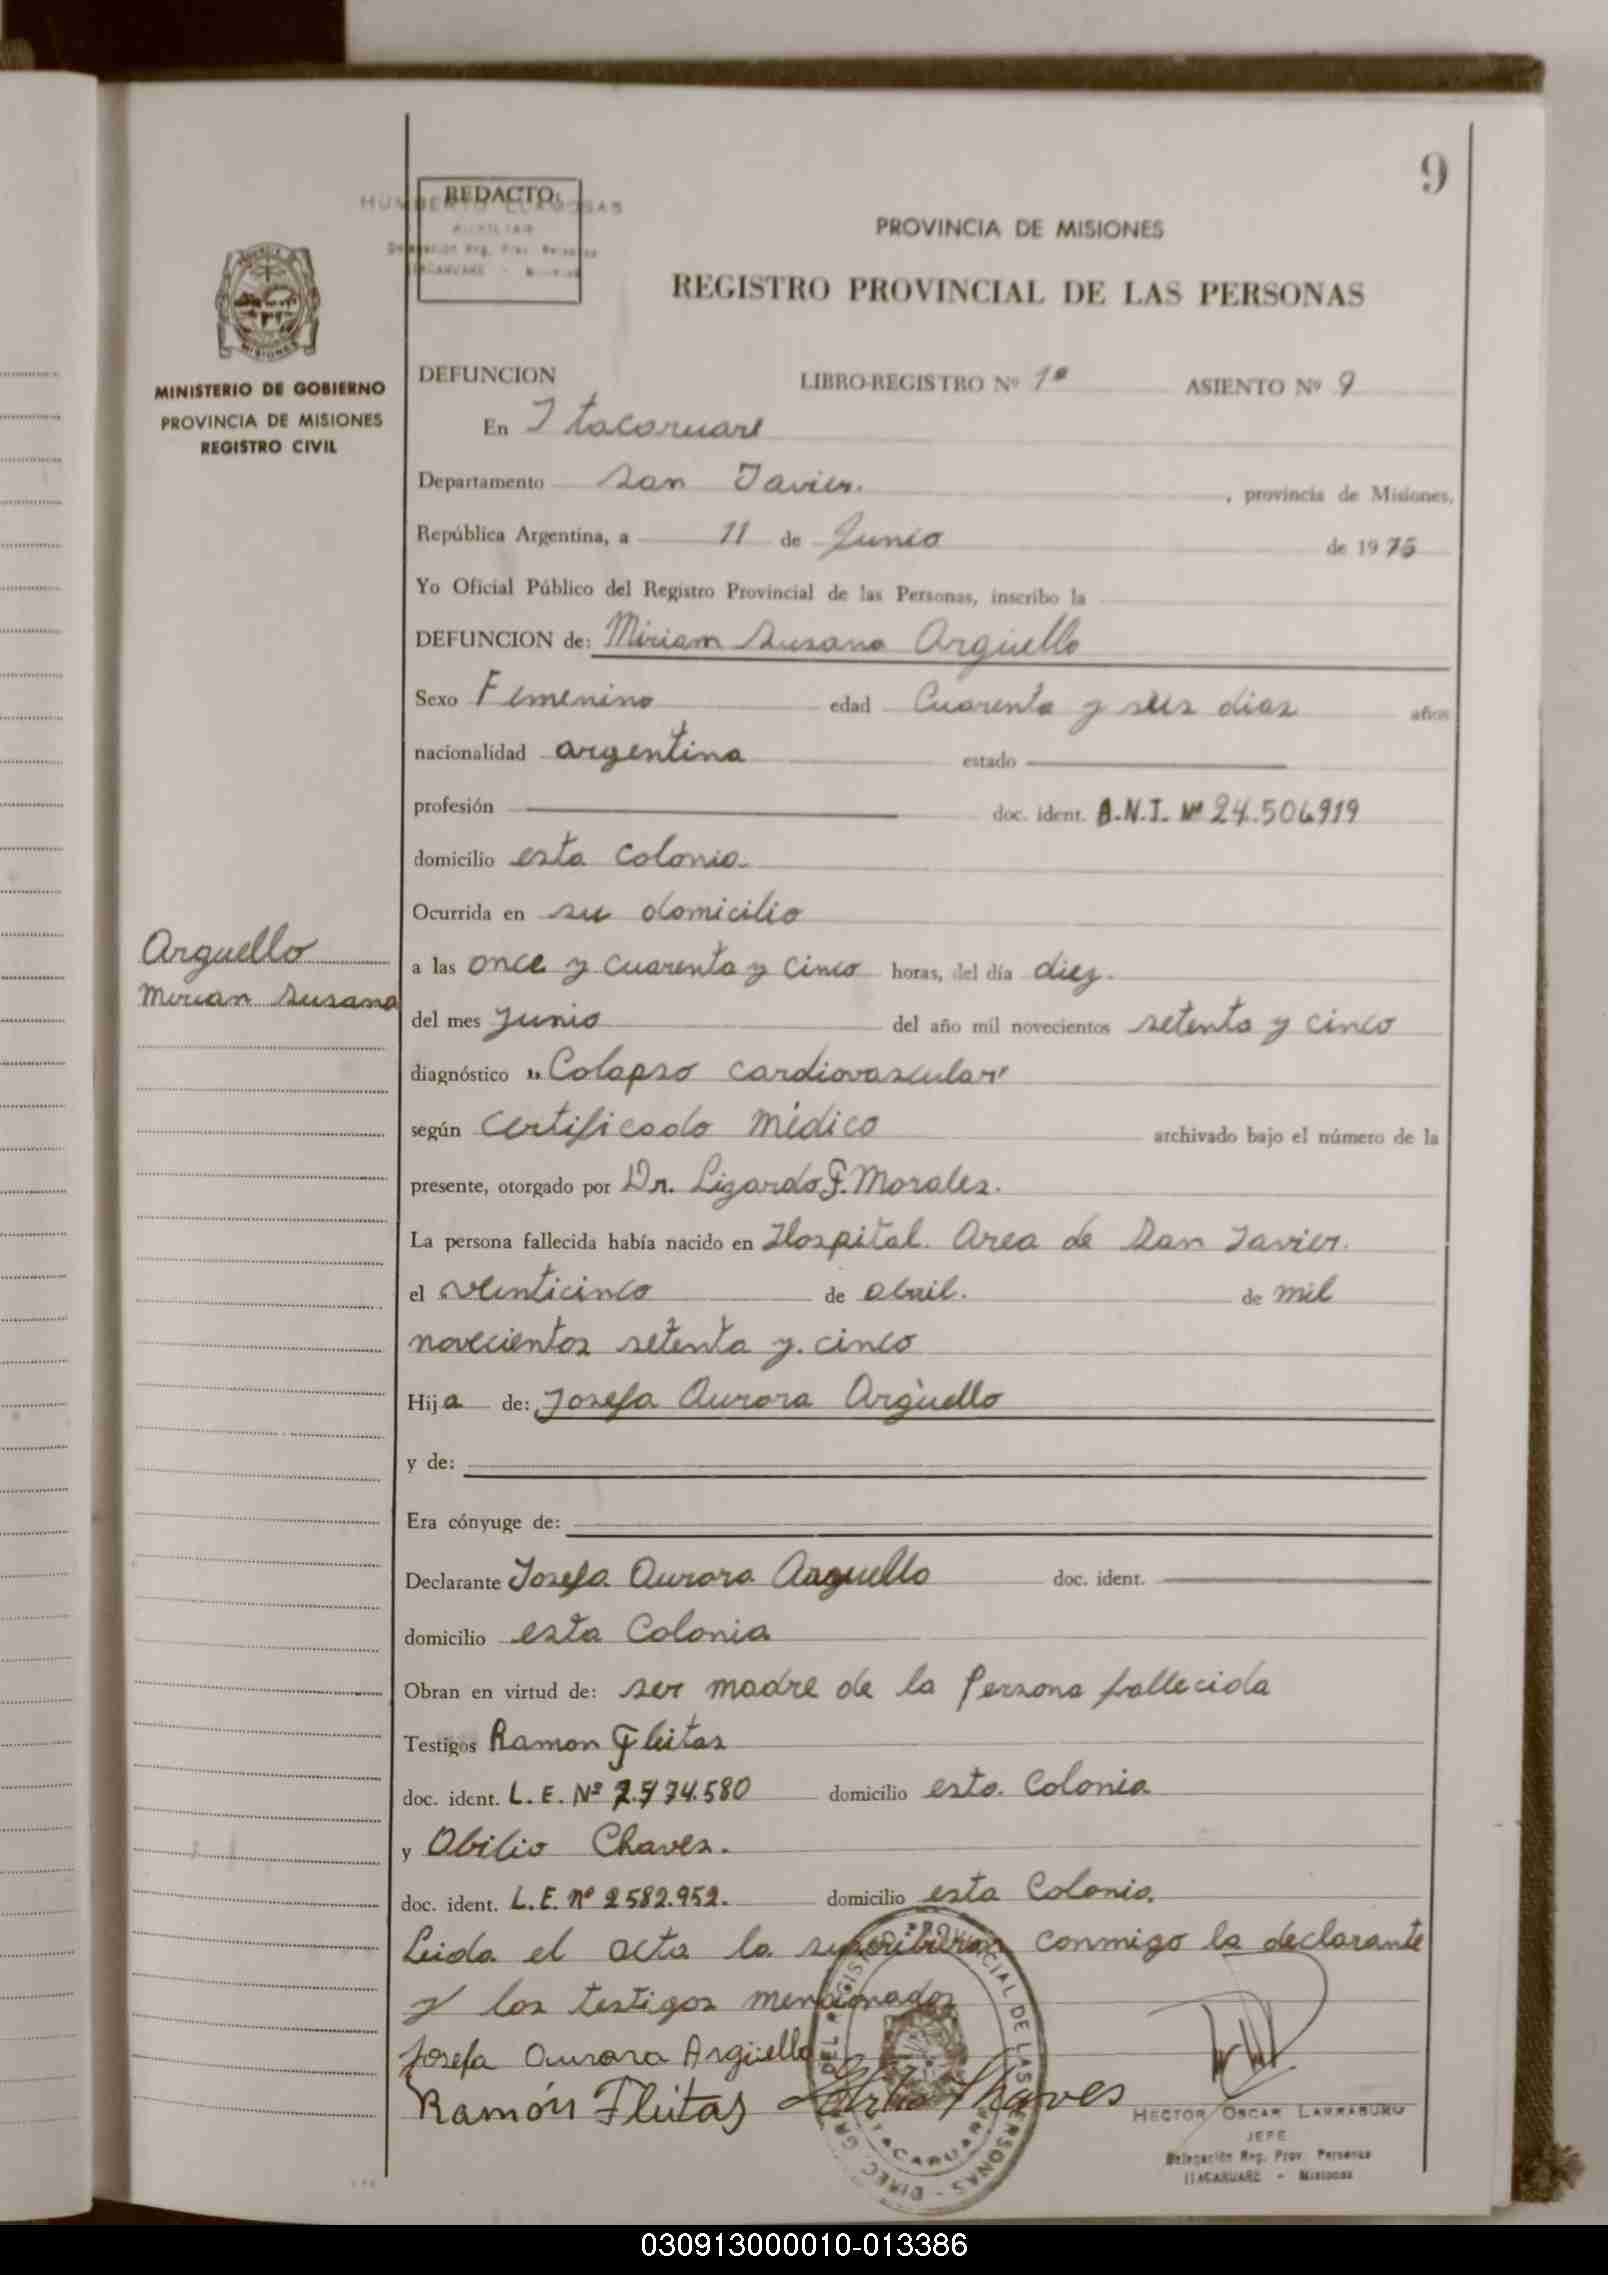 9
REDACTO:
PROVINCIA DE MISIONES
REGISTRO PROVINCIAL DE LAS PERSONAS
MINISTERIO DE GOBIERNO
PROVINCIA DE MISIONES
REGISTRO CIVIL
DEFUNCION LIBRO-REGISTRO Nº 1º ASIENTO Nº 9
En Itacaruare
Departamento San Javier. , provincia de Misiones,
República Argentina, a 11 de Junio de 1975
Yo Oficial Público del Registro Provincial de las Personas, inscribo la
DEFUNCION de: Miriam Susana Argüello
Sexo Femenino edad Cuarenta y seis dias años
nacionalidad argentina estado
profesión doc. ident. A.N.I. Nº 24.506919
domicilio esta Colonia.
Ocurrida en su domicilio
Arguello
Mirian Susana
a las once y cuarenta y cinco horas, del día diez.
del mes Junio del año mil novecientos setenta y cinco
diagnóstico "Colapso cardiovascular"
según Certificado Médico archivado bajo el número de la
presente, otorgado por Dr. Lizardo F. Morales.
La persona fallecida había nacido en Hospital. Area de San Javier.
el veinticinco de abril. de mil
novecientos setenta y. cinco
Hija de: Josefa Aurora Argüello
y de:
Era cónyuge de:
Declarante Josefa Aurora Arguello doc. ident.
domicilio esta Colonia
Obran en virtud de: ser madre de la Persona fallecida
Testigos Ramon Fleitas
doc. ident. L. E. Nº domicilio esta. Colonia
y Obilio Chaves.
doc. ident. L.E. nº 2582.952. domicilio esta Colonia.
Leida el acta la suscribieron conmigo la declarante
y los testigos mencionados
Josefa Aurora Argüello
Ramón Fleitas Chaves
HECTOR OSCAR LARRABURU
JEFE
Delegación Reg. Prov. Personas
ITACARUARE - Misiones
030913000010-013386